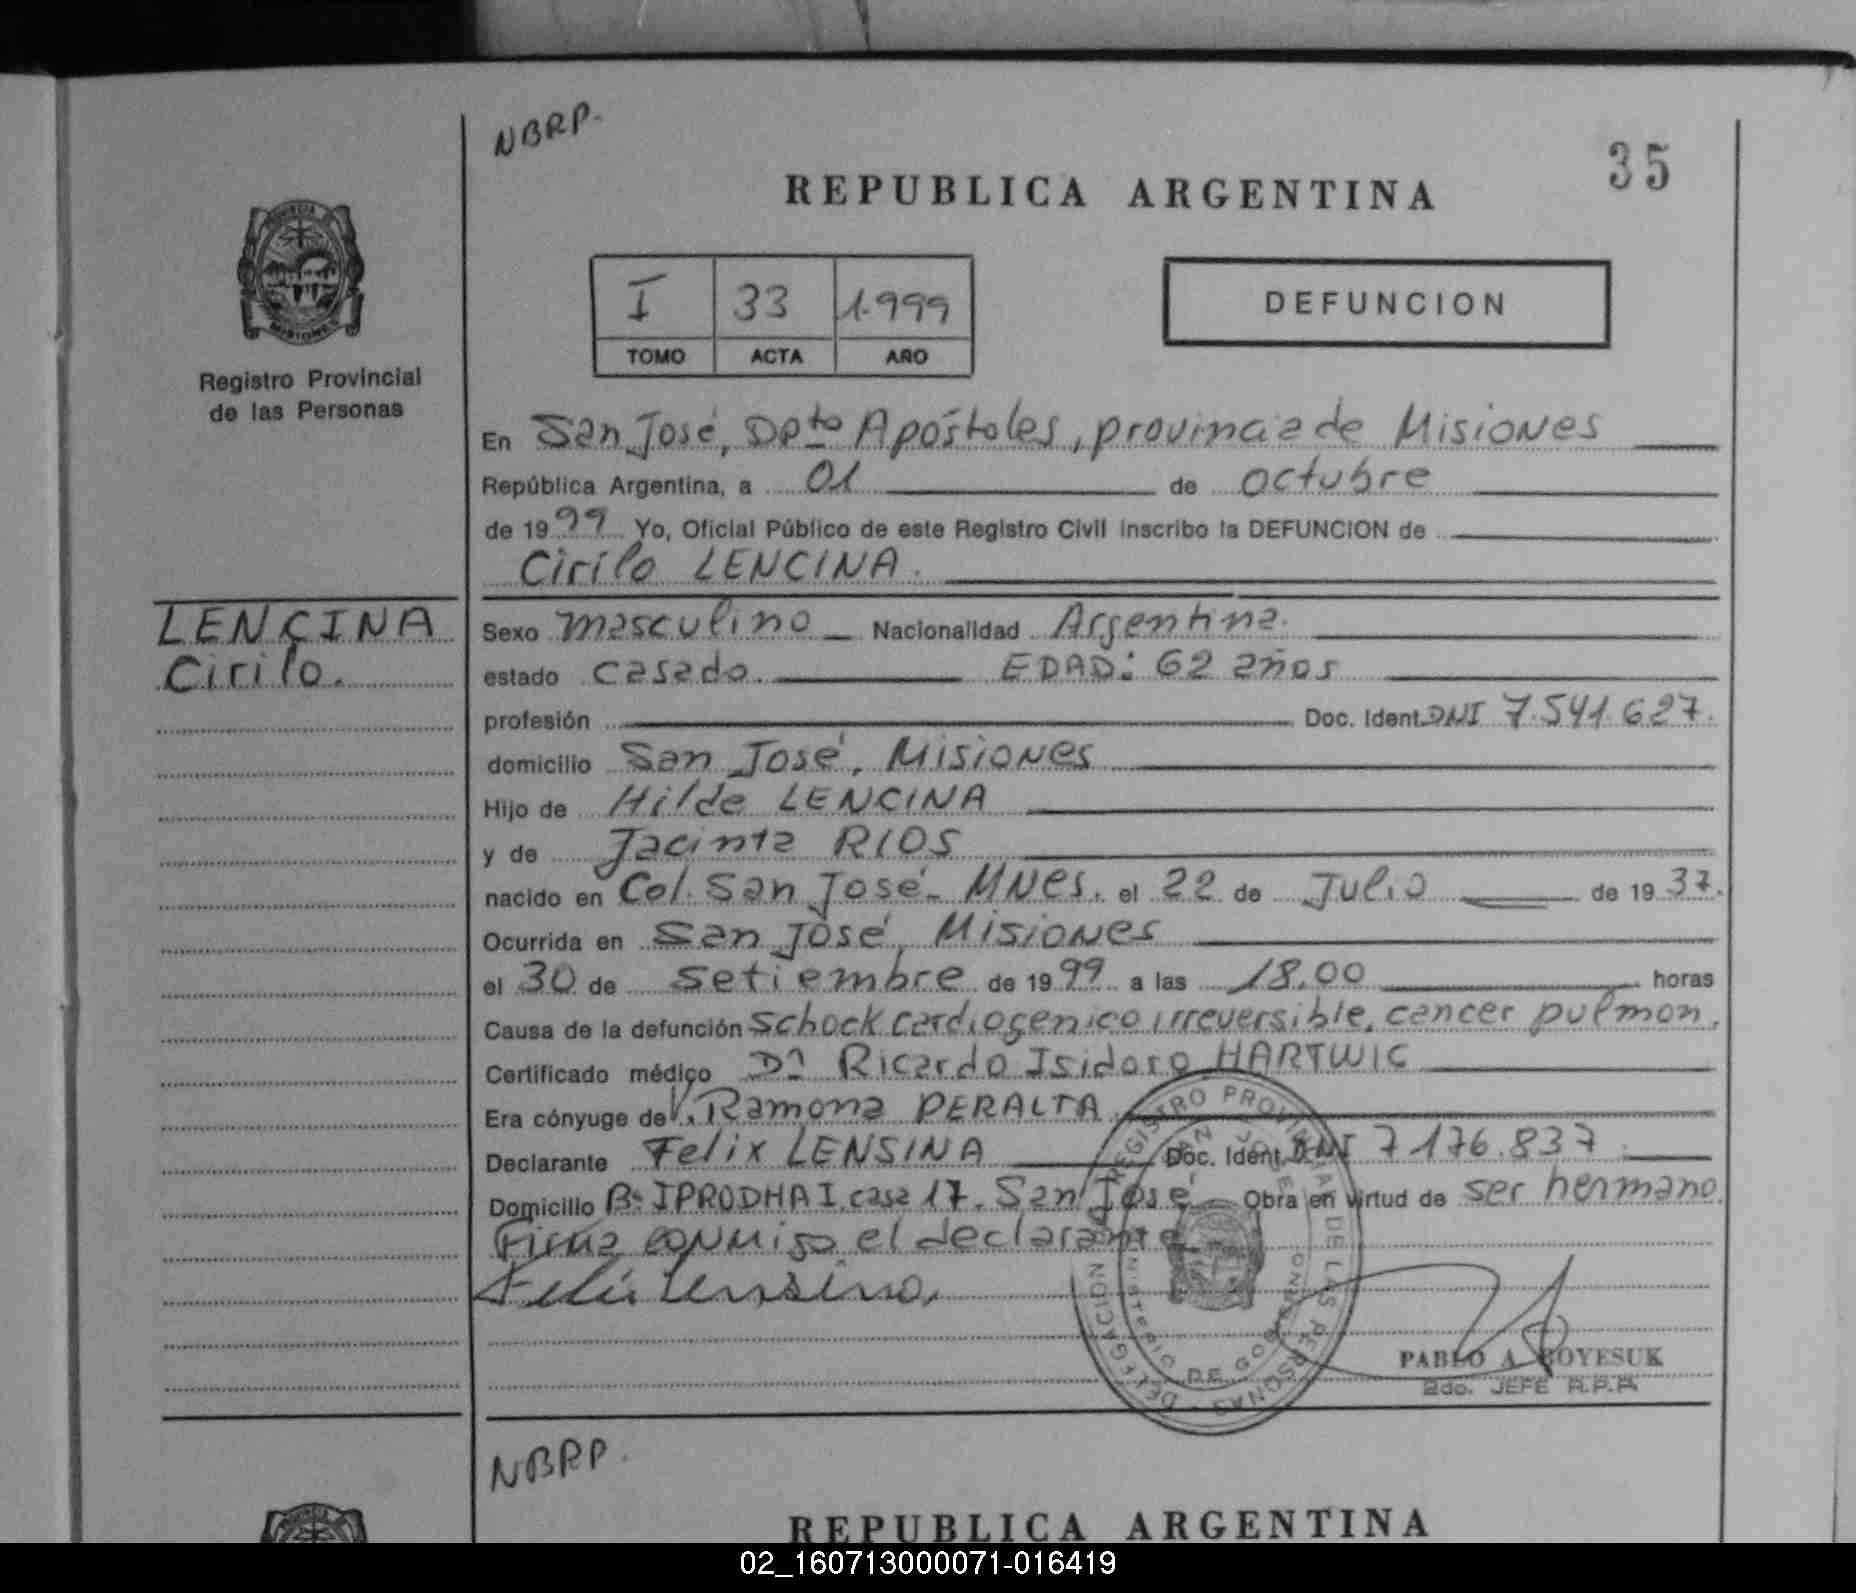 NBRP.
35
REPUBLICA ARGENTINA
PROVINCIA DE
MISIONES
Registro Provincial
de las Personas
I 33 1.999
TOMO ACTA AÑO
DEFUNCION
En San José, Dpto Apóstoles, provincia de Misiones
República Argentina, a 01 de octubre
de 1999 Yo, Oficial Público de este Registro Civil inscribo la DEFUNCION de
Cirilo LENCINA.
LENCINA
Cirilo.
Sexo masculino Nacionalidad Argentina.
estado casado. EDAD: 62 años
profesión Doc. Ident. DNI 7.541.627.
domicilio San José, Misiones
Hijo de Hilde LENCINA
y de Jacinta RIOS
nacido en Col. San José - Mnes. el 22 de Julio de 1937.
Ocurrida en San José, Misiones
el 30 de setiembre de 1999 a las 18,00 horas
Causa de la defunción schock cardiogenico irreversible, cancer pulmon.
Certificado médico Dr Ricardo Isidoro HARTWIG
Era cónyuge de V. Ramona PERALTA
Declarante Felix LENSINA Doc. Ident. DNI 7176.837.
Domicilio Bº IPRODHA I, casa 17. San José Obra en virtud de ser hermano
Firma conmigo el declarante
Felix Lensina.
REGISTRO PROVINCIAL DE LAS PERSONAS - DELEGACION
SAN JOSE
MINISTERIO DE GOBIERNO
PABLO A. BOYESUK
2do. JEFE R.P.P.
NBRP.
REPUBLICA ARGENTINA
02_160713000071-016419